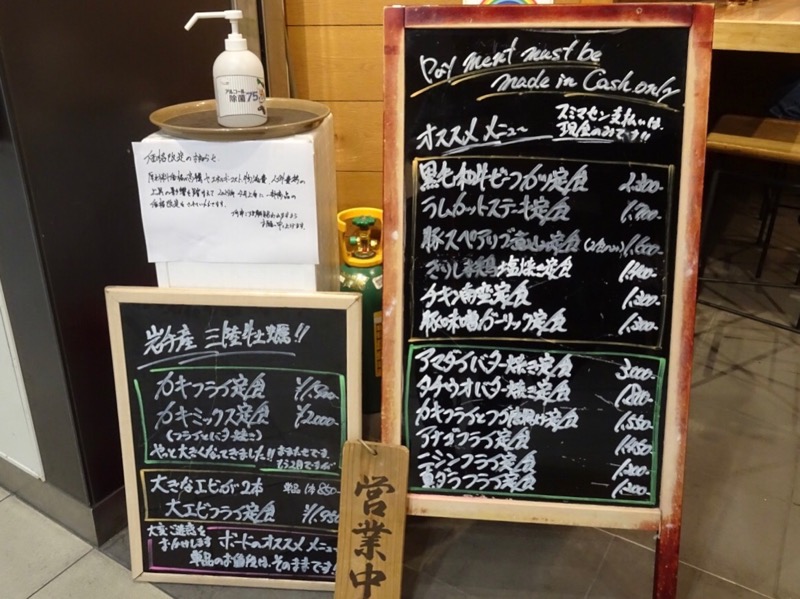 アルコール
除菌 75
価格改定のお知らせ
Payment must be
made in Cash only
スミマセン 支払いは、
現金のみです!!
オススメメニュー
黒毛和牛ビーフカツ定食
ラムカットステーキ定食 1,700-
豚スペアリブ
塩焼き定食 1,400-
チキン南蛮定食 1,300-
豚味噌ガーリック定食 1,300-
アマダイバター焼き定食 3,000-
タチウオバター焼き定食 1,800-
カキフライとつぶ唐揚げ定食 1,550-
アナゴフライ定食 1,450-
ニシンフライ定食 1,200-
真ダラフライ定食 1,200-
岩手産 三陸牡蠣!!
カキフライ定食 ¥1,500-
カキミックス定食 ¥2,000-
(フライとバター焼き)
やっと大きくなってきました!!
大きなエビが2本 単品は850-
大エビフライ定食 ¥1,950
大変ご迷惑を
おかけします
ボードのオススメメニュー
単品のお値段は、そのままです!
営業中